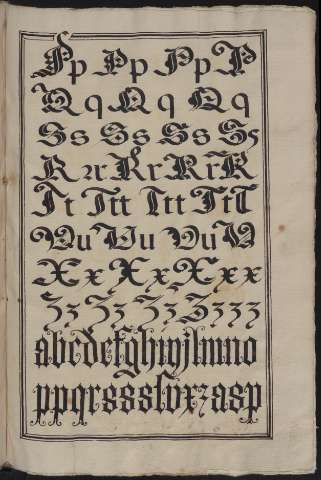 Pp Pp Pp P
Q q Q q Q q
Ss Ss Ss Ss
R rr Rr Rr R
Tt Ttt Ttt TtT
Vu Vu Vu V
Xx Xx Xxx
Zz Zz Zz Zzzz
abcdefghijlmno
ppqrssssſvxzasp